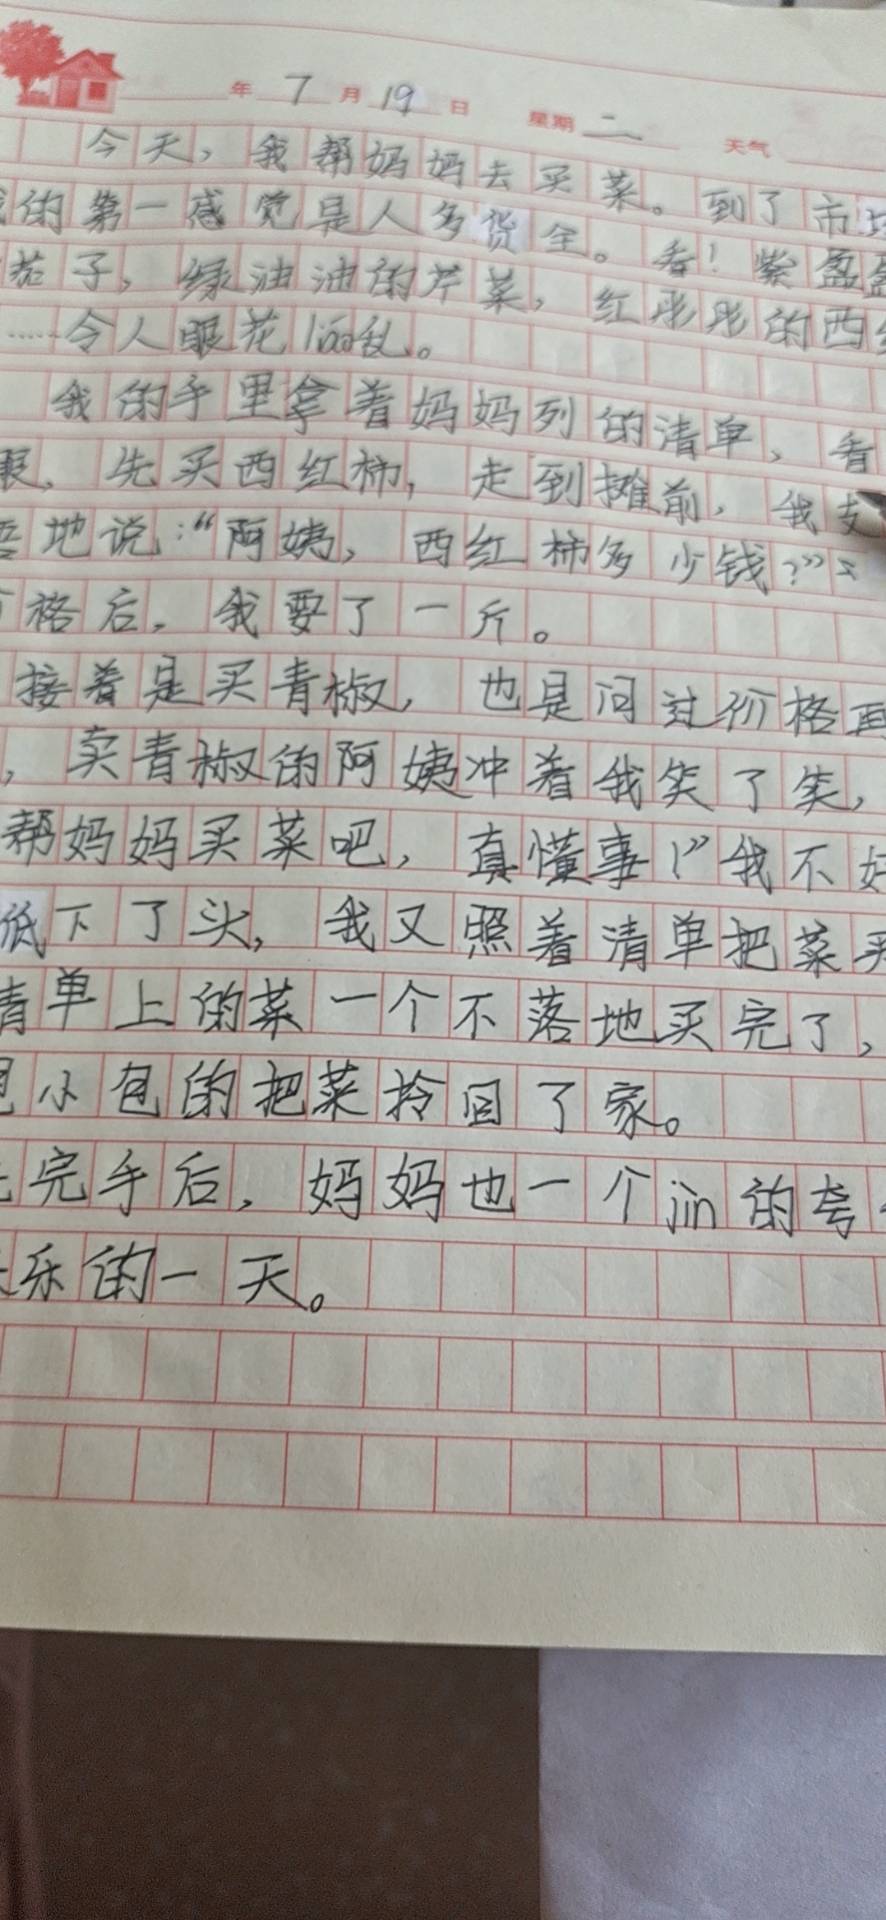 年 7 月 19 日 星期 二 天气
今天，我帮妈妈去买菜。到了市
的第一感觉是人多货全。看！紫盈盈
茄子，绿油油的芹菜，红彤彤的西
……令人眼花liáo乱。
我的手里拿着妈妈列的清单，看
眼，先买西红柿，走到摊前，我支
地说：“阿姨，西红柿多少钱？”
格后，我要了一斤。
接着是买青椒，也是问过价格再
，卖青椒的阿姨冲着我笑了笑，
帮妈妈买菜吧，真懂事！”我不好
低下了头，我又照着清单把菜买
清单上的菜一个不落地买完了，
小包的把菜拎回了家。
完手后，妈妈也一个jìn的夸
乐的一天。